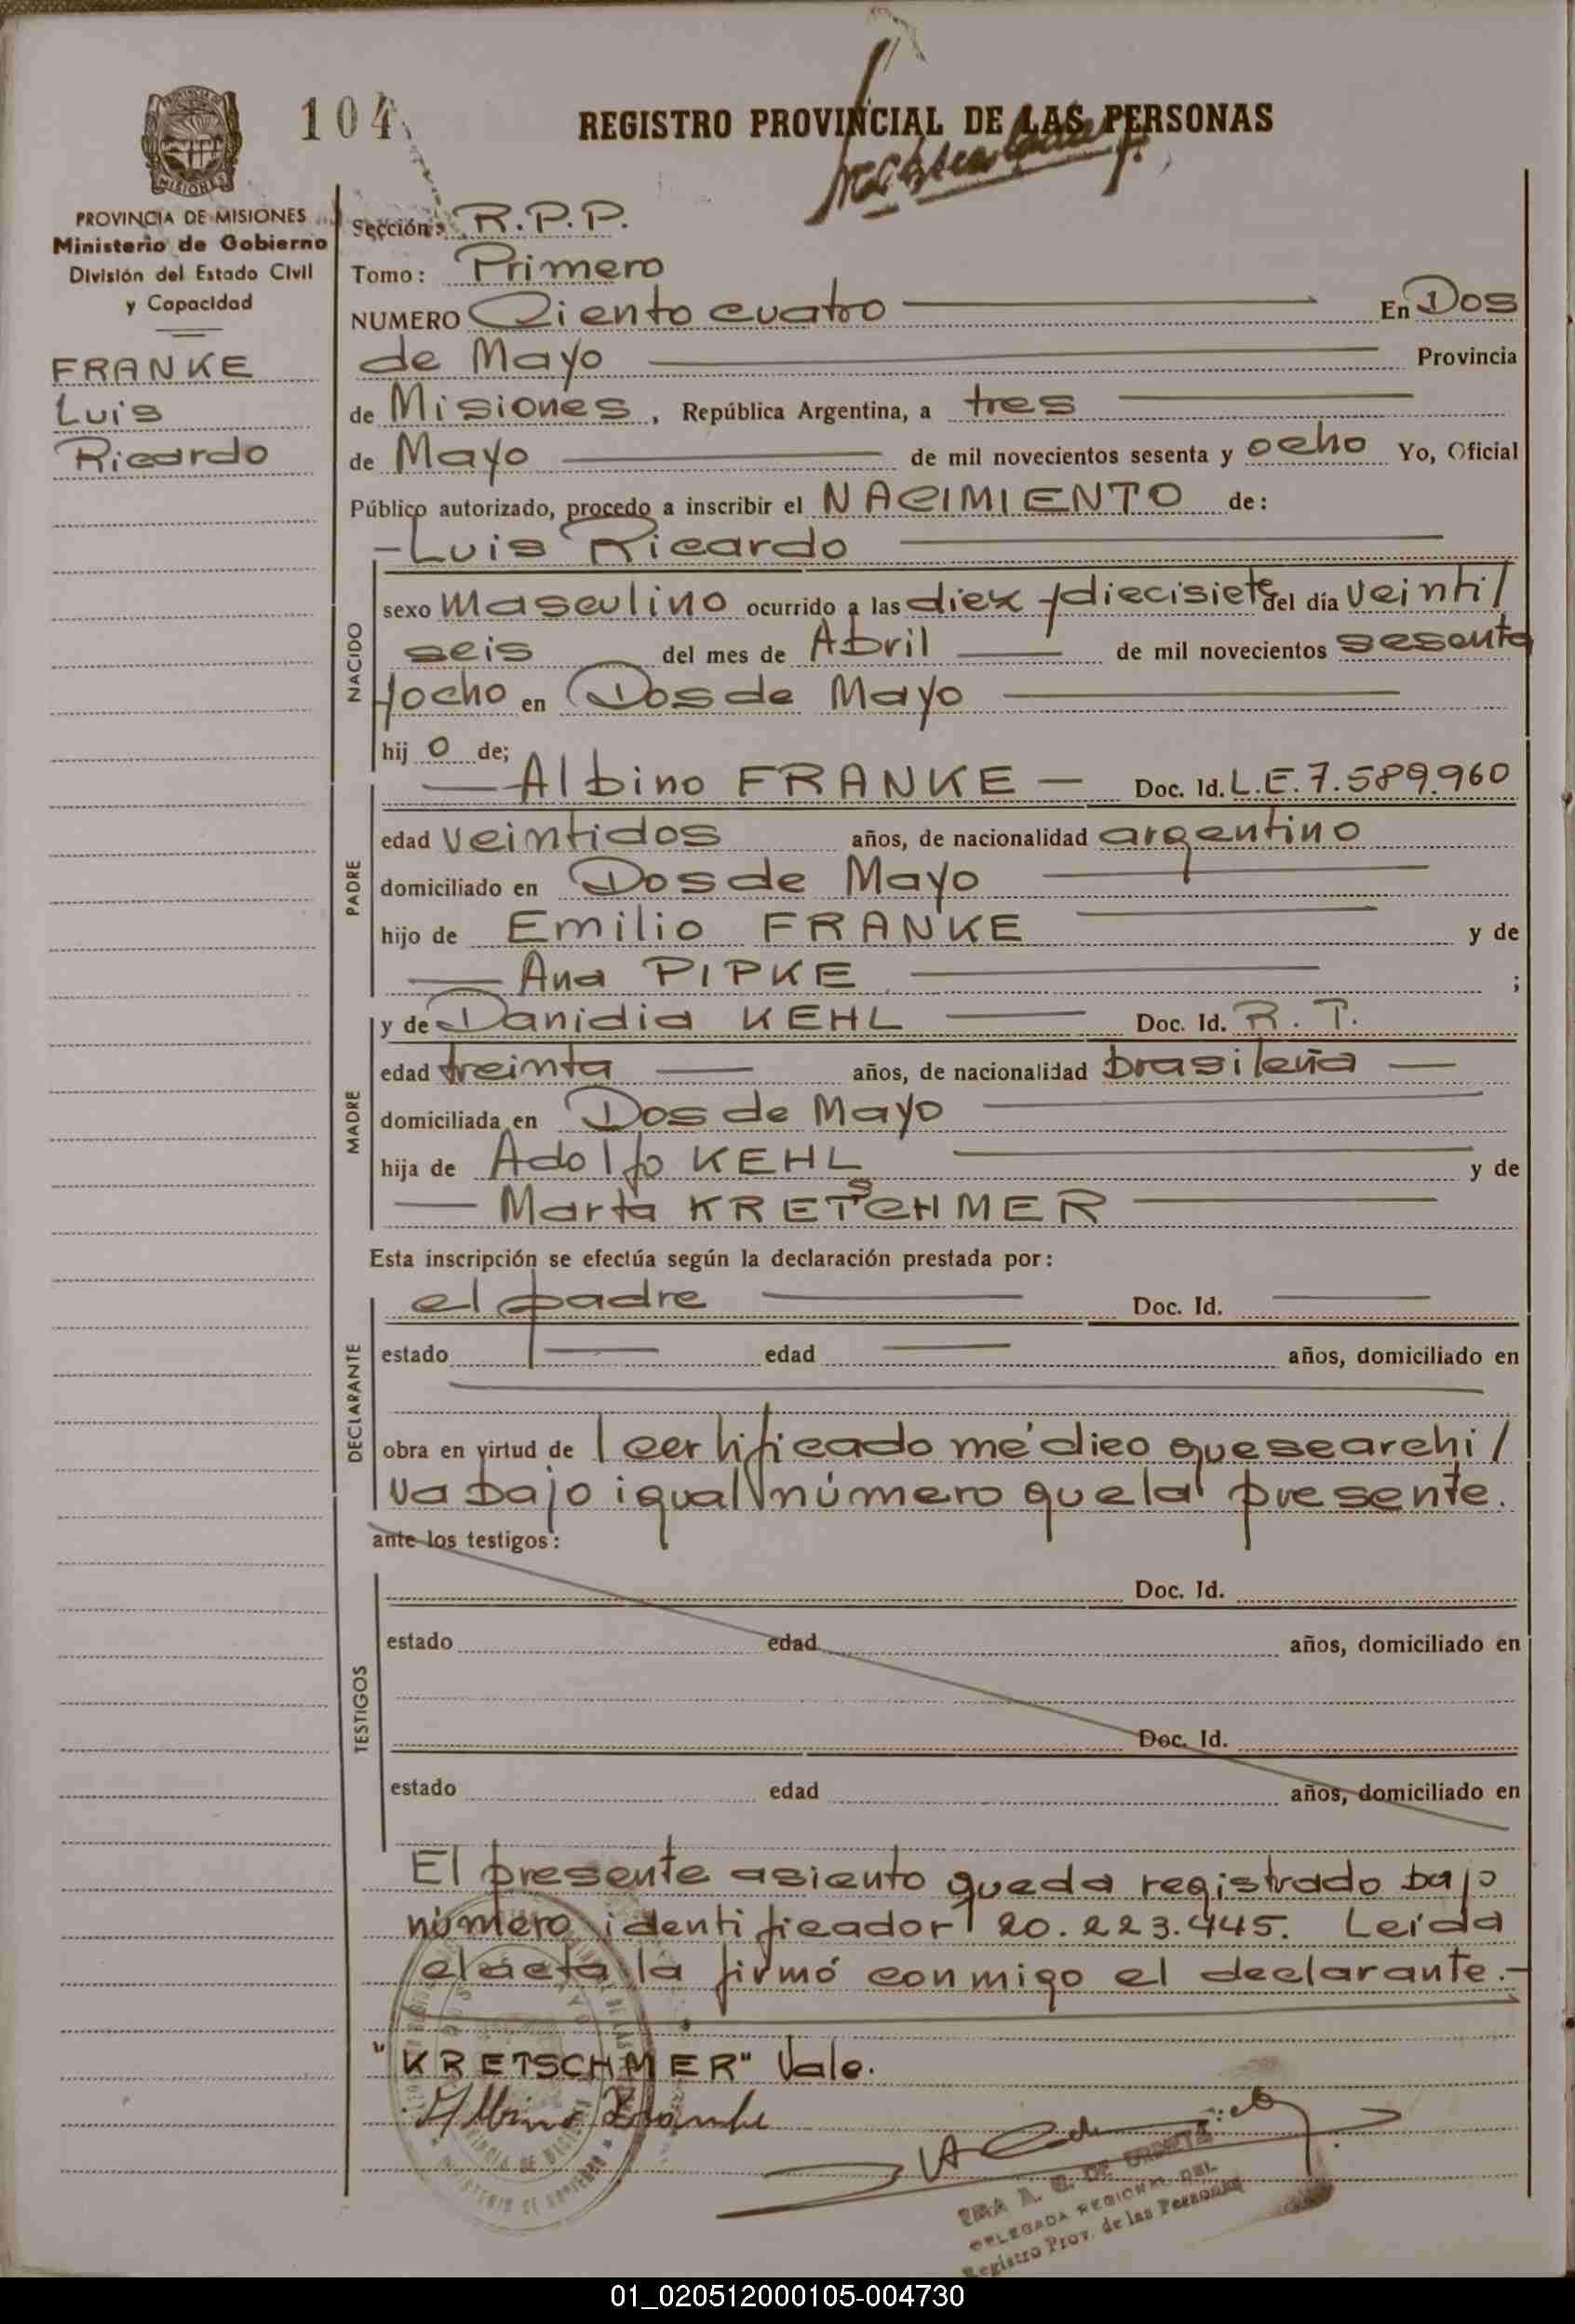 104
REGISTRO PROVINCIAL DE LAS PERSONAS
MISIONES
PROVINCIA DE MISIONES
Ministerio de Gobierno
División del Estado Civil
y Capacidad
FRANKE
Luis
Ricardo
Sección: R.P.P.
Tomo: Primero
NUMERO Ciento cuatro En Dos
de Mayo Provincia
de Misiones, República Argentina, a tres
de Mayo de mil novecientos sesenta y ocho Yo, Oficial
Público autorizado, procedo a inscribir el NACIMIENTO de:
-Luis Ricardo
NACIDO
sexo masculino ocurrido a las diez y diecisiete del día veinti/
seis del mes de Abril de mil novecientos sesenta
y ocho en Dos de Mayo
hij o de;
PADRE
— Albino FRANKE — Doc. Id. L.E. 7.589.960
edad veintidos años, de nacionalidad argentino
domiciliado en Dos de Mayo
hijo de Emilio FRANKE y de
— Ana PIPKE ;
MADRE
y de Danidia KEHL Doc. Id. R. T.
edad treinta años, de nacionalidad brasileña —
domiciliada en Dos de Mayo
hija de Adolfo KEHL y de
— Marta KRETSCHMER
Esta inscripción se efectúa según la declaración prestada por:
DECLARANTE
el padre Doc. Id.
estado edad años, domiciliado en
obra en virtud de certificado médico que se archi/
va bajo igual número que la presente.
ante los testigos:
TESTIGOS
Doc. Id.
estado edad años, domiciliado en
Doc. Id.
estado edad años, domiciliado en
El presente asiento queda registrado bajo
número identificador 20.223.445. Leída
el acta la firmó conmigo el declarante.-
"KRETSCHMER" Vale.
Albino Franke
DELEGADA REGIONAL DEL
Registro Prov. de las Personas
01_020512000105-004730